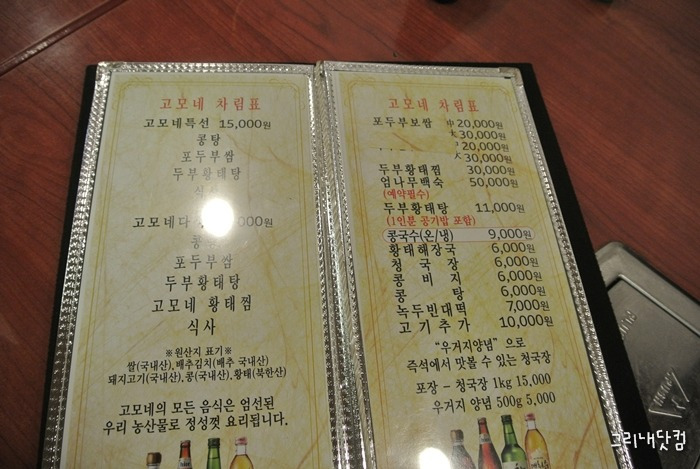 고모네 차림표
고모네특선 15,000원
콩탕
포두부쌈
두부황태탕
고모네다
포두부쌈
두부황태탕
고모네 황태찜
식사
※원산지 표기※
쌀(국내산),배추김치(배추 국내산)
돼지고기(국내산),콩(국내산),황태(북한산)
고모네의 모든 음식은 엄선된
우리 농산물로 정성껏 요리됩니다.
고모네 차림표
포두부보쌈 中20,000원
大30,000원
20,000원
大30,000원
두부황태찜 30,000원
엄나무백숙 50,000원
(예약필수)
두부황태탕 11,000원
(1인분 공기밥 포함)
콩국수(온/냉) 9,000원
황태해장국 6,000원
청국장 6,000원
콩비지 6,000원
콩탕 6,000원
녹두빈대떡 7,000원
고기추가 10,000원
"우거지양념" 으로
즉석에서 맛볼 수 있는 청국장
포장 - 청국장 1kg 15,000
우거지 양념 500g 5,000
그리내닷컴